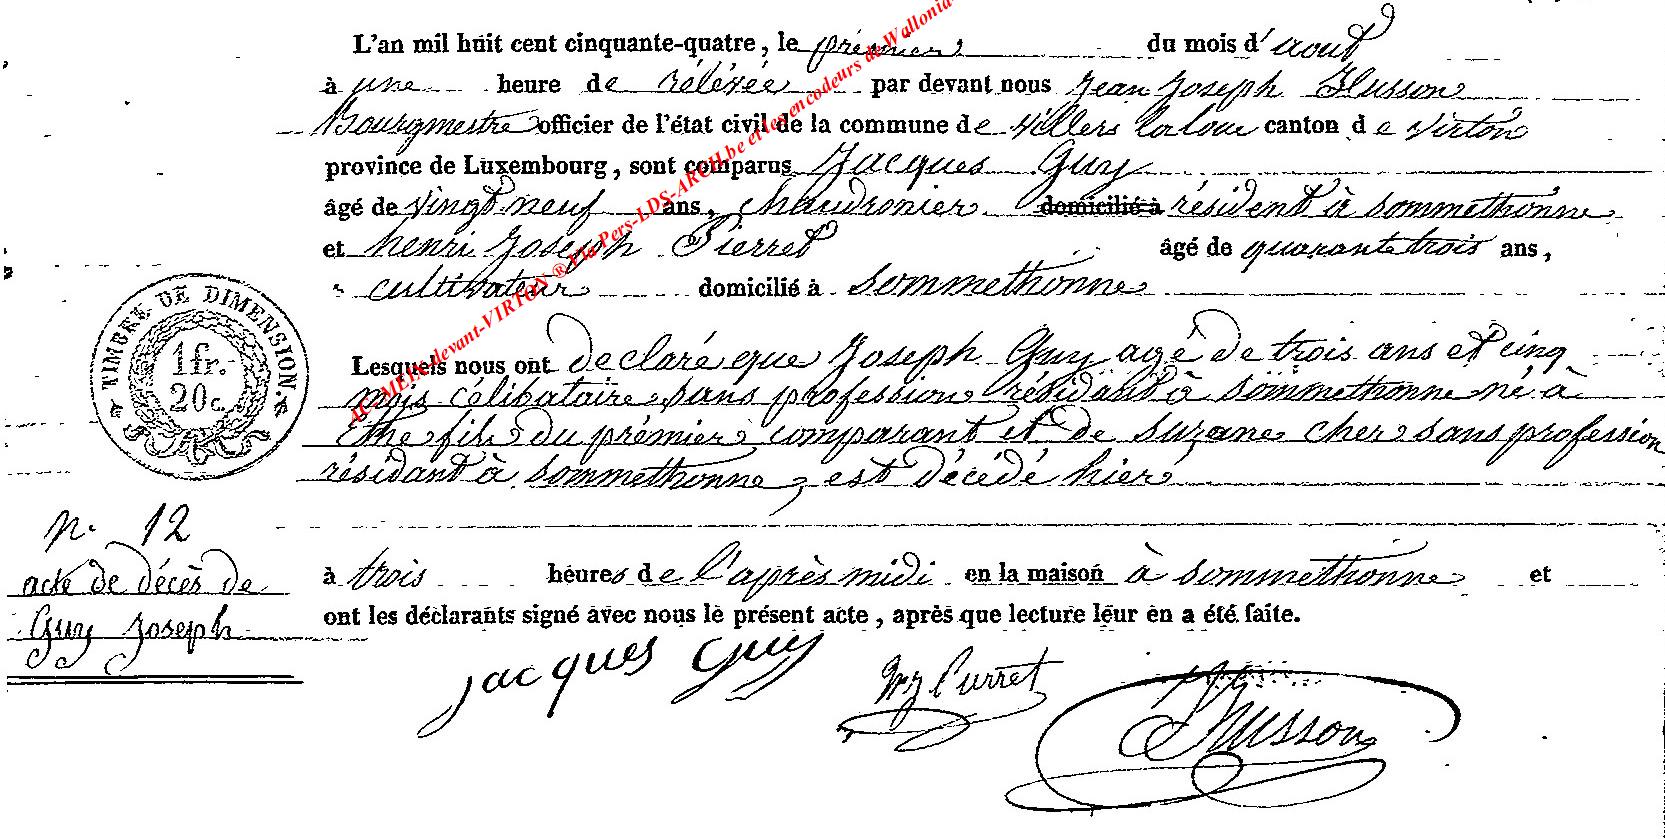 L'an mil huit cent cinquante-quatre, le prémier du mois d'aout
à une heure de rélévée par devant nous Jean Joseph Husson
Bourgmestre officier de l'état civil de la commune de Villers laloue canton de Virton
province de Luxembourg, sont comparus Jacques Guy
âgé de vingt neuf ans, chaudronier domicilié à résident à sommethonne
et henri Joseph Pierret âgé de quarante trois ans,
cultivateur domicilié à sommethonne
TIMBRE DE DIMENSION.
1 fr.
20 c.
Lesquels nous ont declaré que Joseph Guy agé de trois ans et cinq
mois célibataire sans profession résidant à sommethonne né à
Ethe fils du prémier comparant et de suzane cher sans profession
résidant à sommethonne, est décédé hier
n. 12
acte de décès de
Guy Joseph
à trois heures de l'après midi en la maison à sommethonne et
ont les déclarants signé avec nous le présent acte, après que lecture leur en a été faite.
jacques Guy
Husson
AC-MEIX-devant-VIRTON ® via Pers-LDS-ARCH.be et les encodeurs de Wallonia